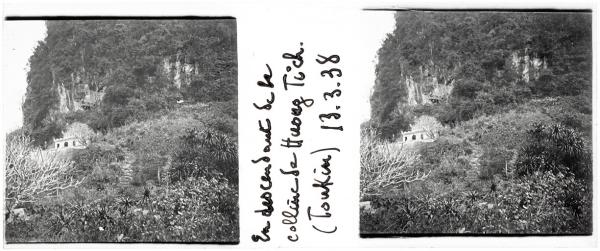 En descendant de la
colline de Huong Tich.
(Tonkin) 13.3.38